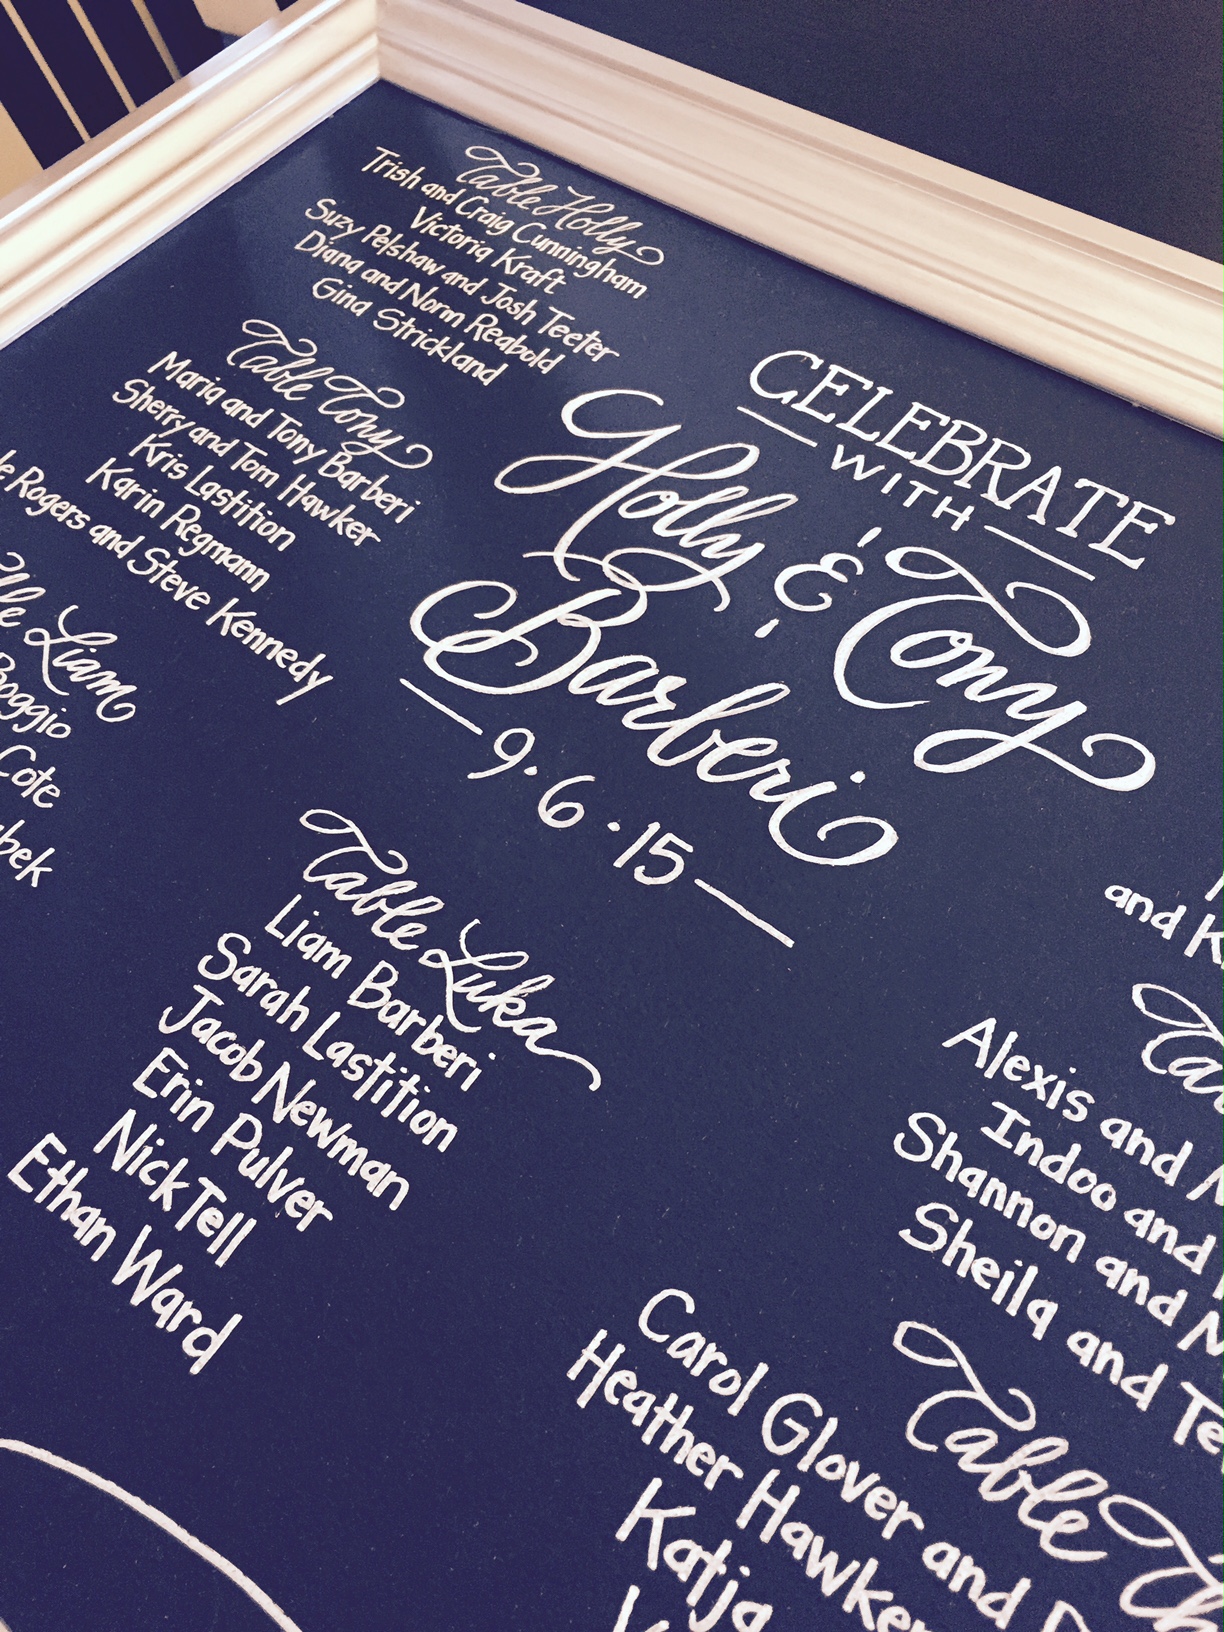 Table Holly
Trish and Craig Cunningham
Victoria Kraft
Suzy Pelshaw and Josh Teeter
Diana and Norm Reabold
Gina Strickland
Table Tony
Maria and Tony Barberi
Sherry and Tom Hawker
Kris Lastition
Karin Regmann
Rogers and Steve Kennedy
Liam
Boggio
Cote
CELEBRATE
WITH
Holly & Tony
Barberi
9.6.15
Table Luka
Liam Barberi
Sarah Lastition
Jacob Newman
Erin Pulver
Nick Tell
Ethan Ward
and
Alexis and
Indoo and
Shannon and
Sheila and
Table
Carol Glover and
Heather Hawker
Katja